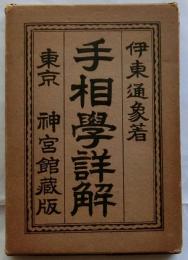 伊東通象著
手相學詳解
東京 神宮館藏版